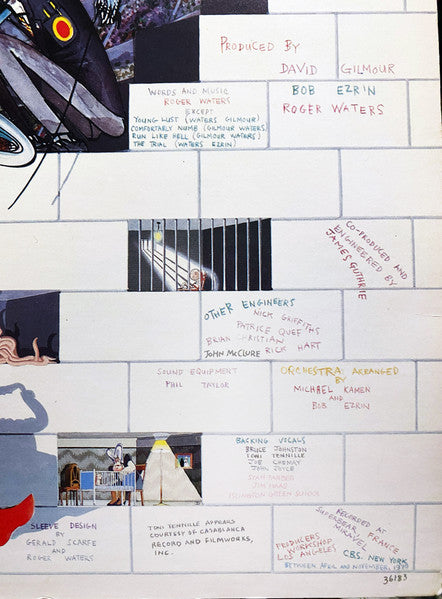 PRODUCED BY
DAVID GILMOUR
BOB EZRIN
ROGER WATERS
WORDS AND MUSIC
ROGER WATERS
EXCEPT
YOUNG LUST (WATERS GILMOUR)
COMFORTABLY NUMB (GILMOUR WATERS)
RUN LIKE HELL (GILMOUR WATERS)
THE TRIAL (WATERS EZRIN)
CO-PRODUCED AND
ENGINEERED BY
JAMES GUTHRIE
OTHER ENGINEERS
NICK GRIFFITHS
PATRICE QUEF
BRIAN CHRISTIAN
JOHN McCLURE RICK HART
SOUND EQUIPMENT
PHIL TAYLOR
ORCHESTRA ARRANGED
BY
MICHAEL KAMEN
AND
BOB EZRIN
BACKING VOCALS
BRUCE JOHNSTON
TONI TENNILLE
JOE CHEMAY
JOHN JOYCE
STAN FARBER
JIM HAAS
ISLINGTON GREEN SCHOOL
SLEEVE DESIGN
BY
GERALD SCARFE
AND
ROGER WATERS
TONI TENNILLE APPEARS
COURTESY OF CASABLANCA
RECORD AND FILMWORKS,
INC.
RECORDED AT
SUPERBEAR, FRANCE
MIRAVEL
PRODUCERS
WORKSHOP
LOS ANGELES
CBS. NEW YORK
BETWEEN APRIL AND NOVEMBER, 1979
36183